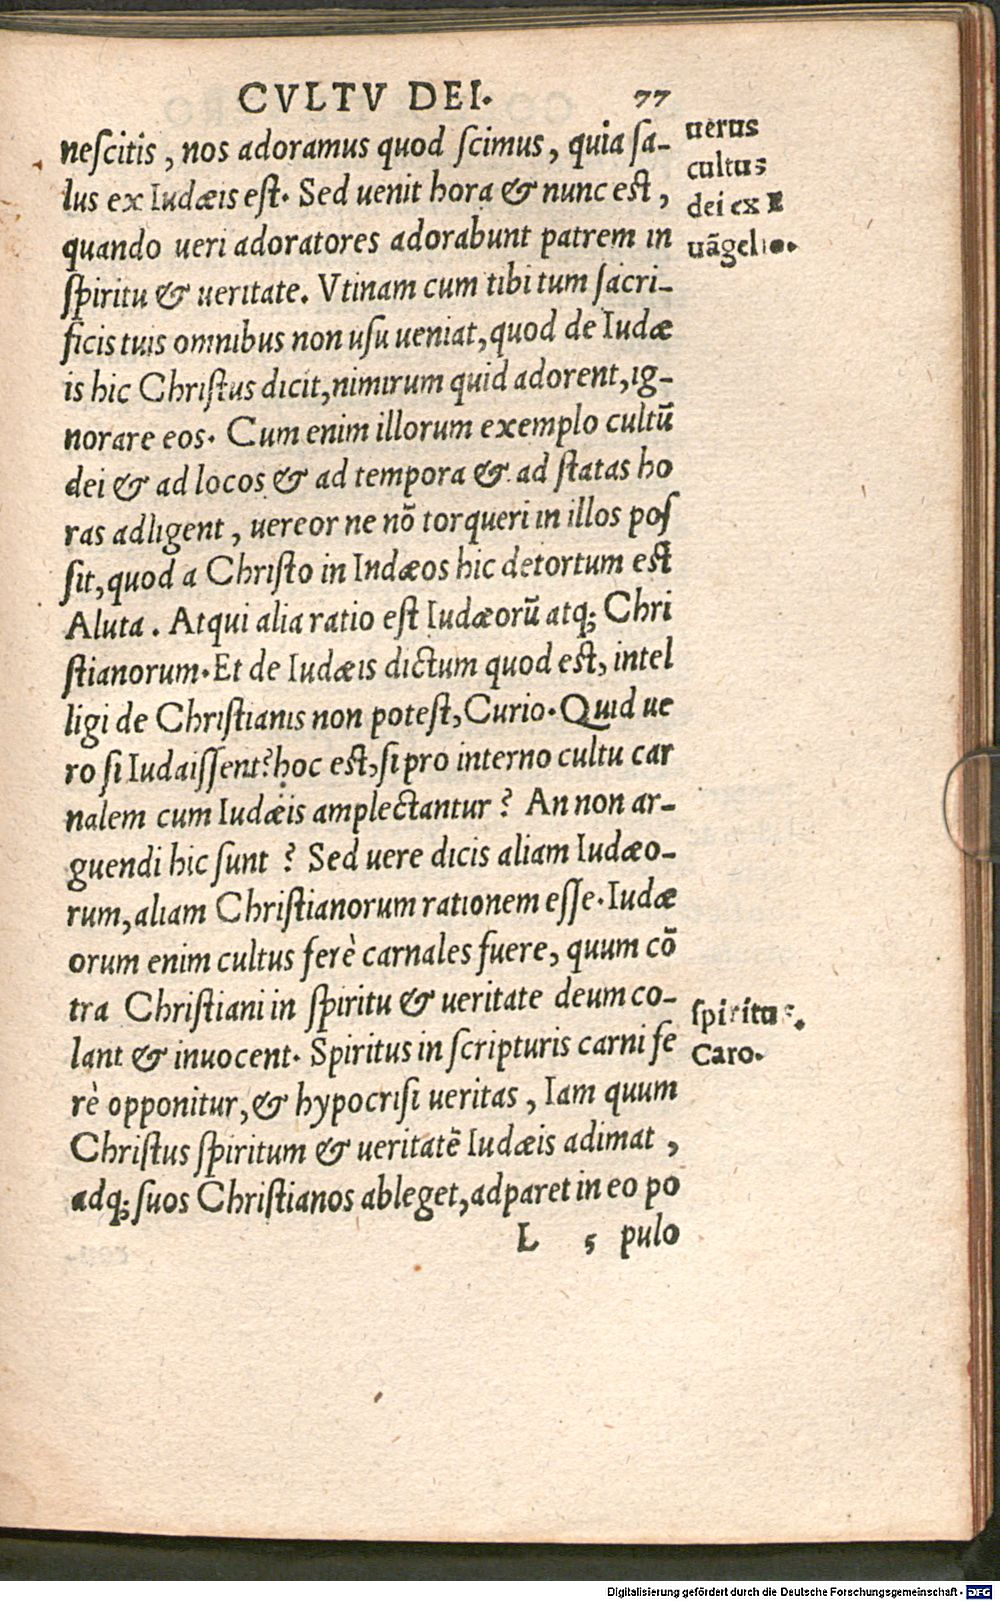 CVLTV DEI. 77
neſcitis, nos adoramus quod ſcimus, quia ſa-
lus ex Iudæis eſt. Sed uenit hora & nunc eſt,
quando ueri adoratores adorabunt patrem in
ſpiritu & ueritate. Vtinam cum tibi tum ſacri-
ficis tuis omnibus non uſu ueniat, quod de Iudæ
is hic Chriſtus dicit, nimirum quid adorent, ig-
norare eos. Cum enim illorum exemplo cultũ
dei & ad locos & ad tempora & ad ſtatas ho
ras adligent, uereor ne nõ torqueri in illos poſ
ſit, quod a Chriſto in Indæos hic detortum eſt
Aluta. Atqui alia ratio eſt Iudæorũ atq; Chri
ſtianorum. Et de Iudæis dictum quod eſt, intel
ligi de Chriſtianis non poteſt, Curio. Quid ue
ro ſi Iudaiſſent? hoc eſt, ſi pro interno cultu car
nalem cum Iudæis amplectantur? An non ar-
guendi hic ſunt? Sed uere dicis aliam Iudæo-
rum, aliam Chriſtianorum rationem eſſe. Iudæ
orum enim cultus ferè carnales fuere, quum cõ
tra Chriſtiani in ſpiritu & ueritate deum co-
lant & inuocent. Spiritus in ſcripturis carni fe
rè opponitur, & hypocriſi ueritas, Iam quum
Chriſtus ſpiritum & ueritatẽ Iudæis adimat,
adq; ſuos Chriſtianos ableget, adparet in eo po
L 5 pulo
uerus
cultus
dei ex E
uãgelio.
ſpiritus.
Caro.
Digitalisierung gefördert durch die Deutsche Forschungsgemeinschaft - DFG